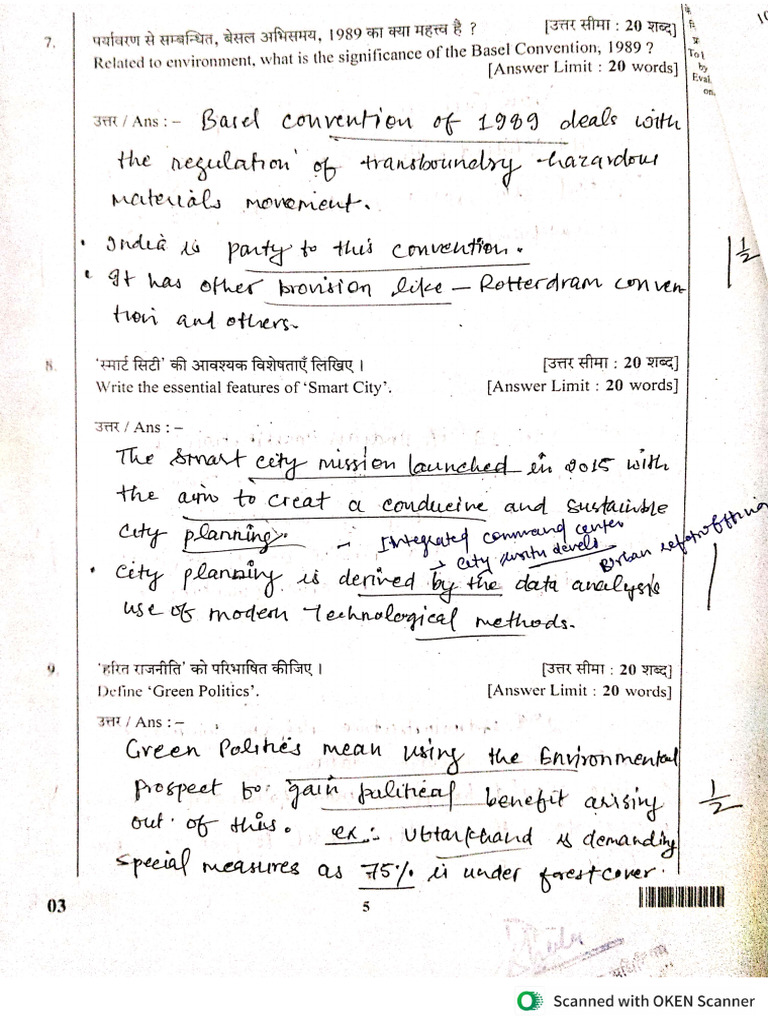 7. पर्यावरण से सम्बन्धित, बेसल अभिसमय, 1989 का क्या महत्त्व है ? [उत्तर सीमा : 20 शब्द]
Related to environment, what is the significance of the Basel Convention, 1989 ?
[Answer Limit : 20 words]
To t
by
Eval
on.
10
उत्तर / Ans : – Basel convention of 1989 deals with
the regulation of transboundry hazardous
materials movement.
• India is party to this convention.
• It has other provision like – Rotterdram conven
tion and others.
1 1/2
8. 'स्मार्ट सिटी' की आवश्यक विशेषताएँ लिखिए । [उत्तर सीमा : 20 शब्द]
Write the essential features of 'Smart City'. [Answer Limit : 20 words]
उत्तर / Ans : –
The Smart city mission launched in 2015 with
the aim to creat a conducive and sustainble
city planning. – Integrated command center
→ city devels
• City planning is derived by the data analysis
use of modern Technological methods.
1
9. 'हरित राजनीति' को परिभाषित कीजिए । [उत्तर सीमा : 20 शब्द]
Define 'Green Politics'. [Answer Limit : 20 words]
उत्तर / Ans : –
Green Politics mean using the Environmental
prospect to gain political benefit arising
out of this. ex: Uttarkhand is demanding
special measures as 75% is under forest cover.
1/2
03 5
Scanned with OKEN Scanner